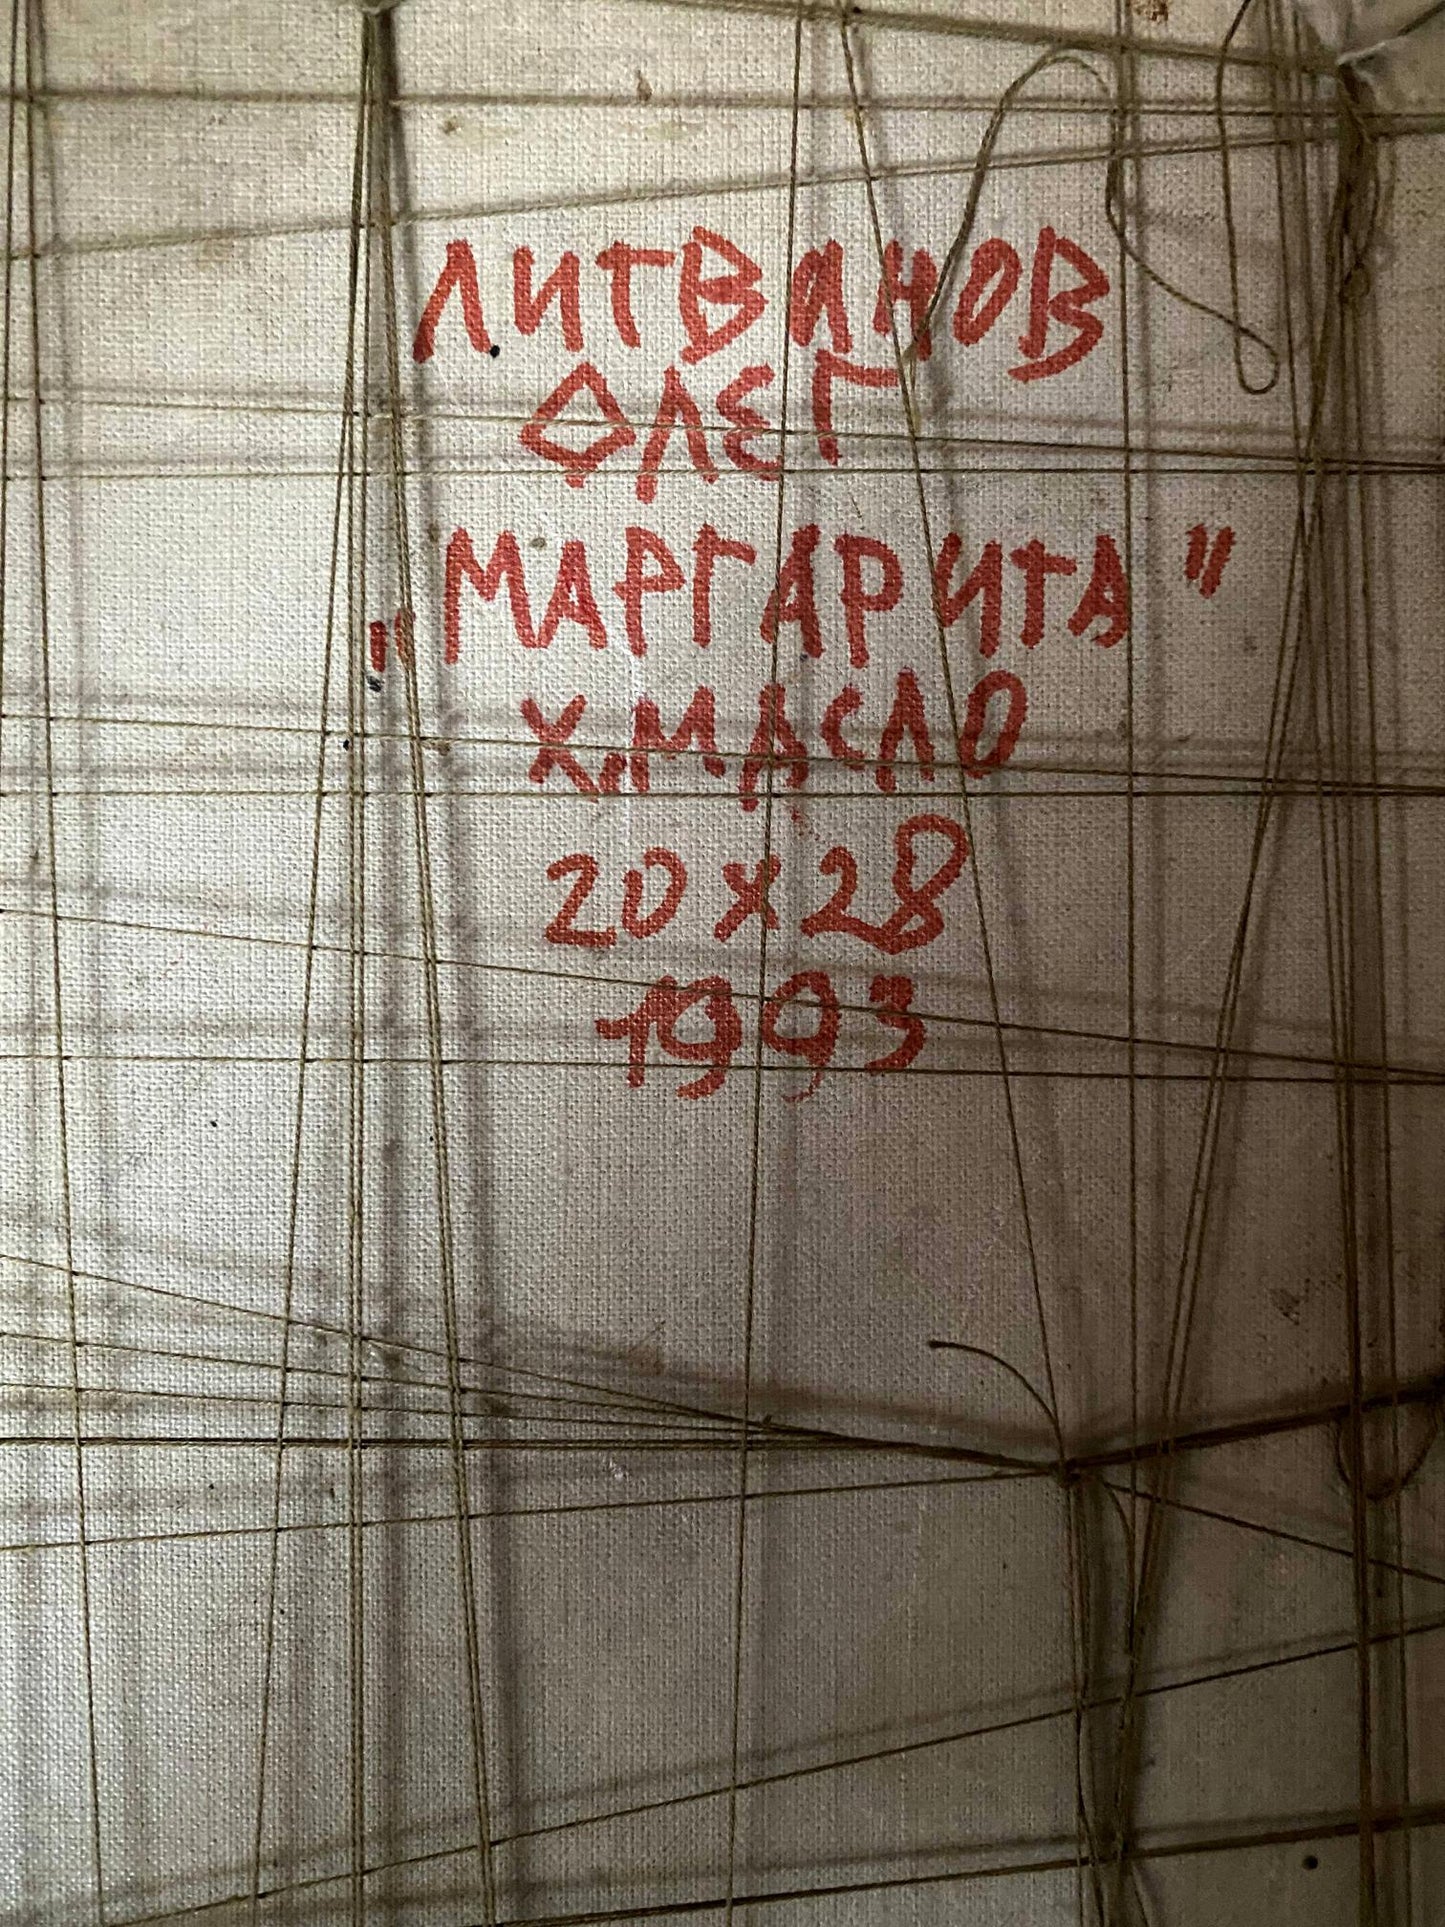 ЛИТВИНОВ
ОЛЕГ
"МАРГАРИТА"
Х,МАСЛО
20х28
1993